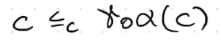 c ≤c γoα(c)